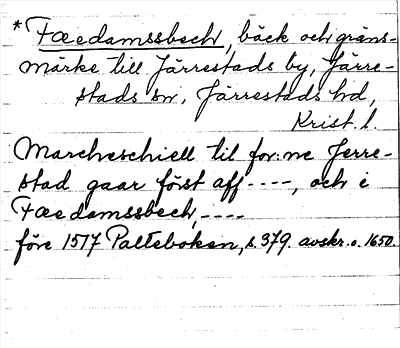 *Fœedamssbech, bäck och gräns-
märke till Järrestads by, Järre-
stads sn, Järrestads hd,
Krist. l.
Marcheschiell til for:ne Jerre-
stad gaar först aff ----, och i
Fœedamssbech, ----
före 1517 Palteboken, s. 379. avskr. o. 1650.